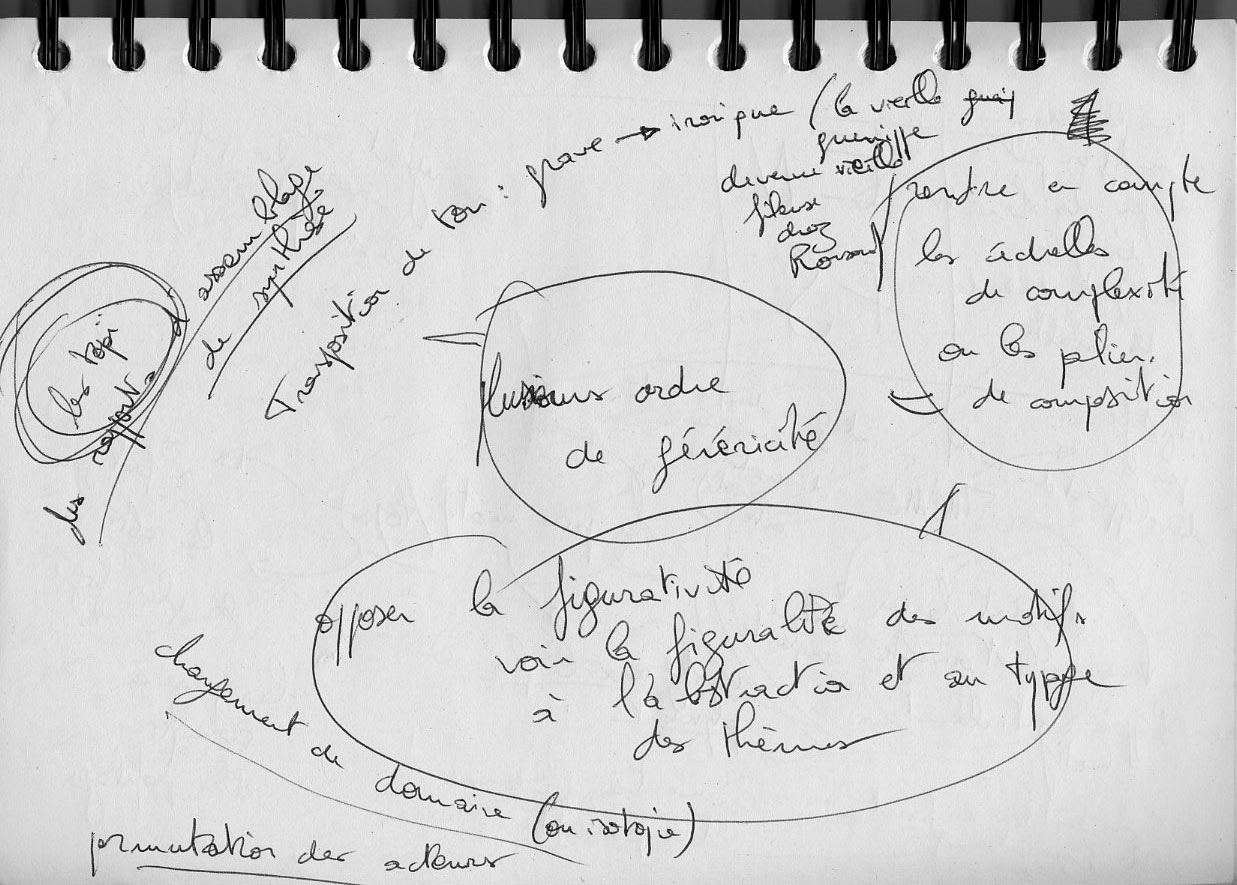 Transposition de ton : grave → ironique (la vieille
guenippe
devenue vieille
fileuse
chez
Ronsard)
prendre en compte
les échelles
de complexité
ou les plier.
de composition
les topï
des rapports d'assemblage
de synthèse
plusieurs ordre
de généricité
opposer la figurativité
voir la figuralité des motifs
à l'abstraction et au type
des thèmes
changement de domaine (ou isotopie)
permutation des acteurs